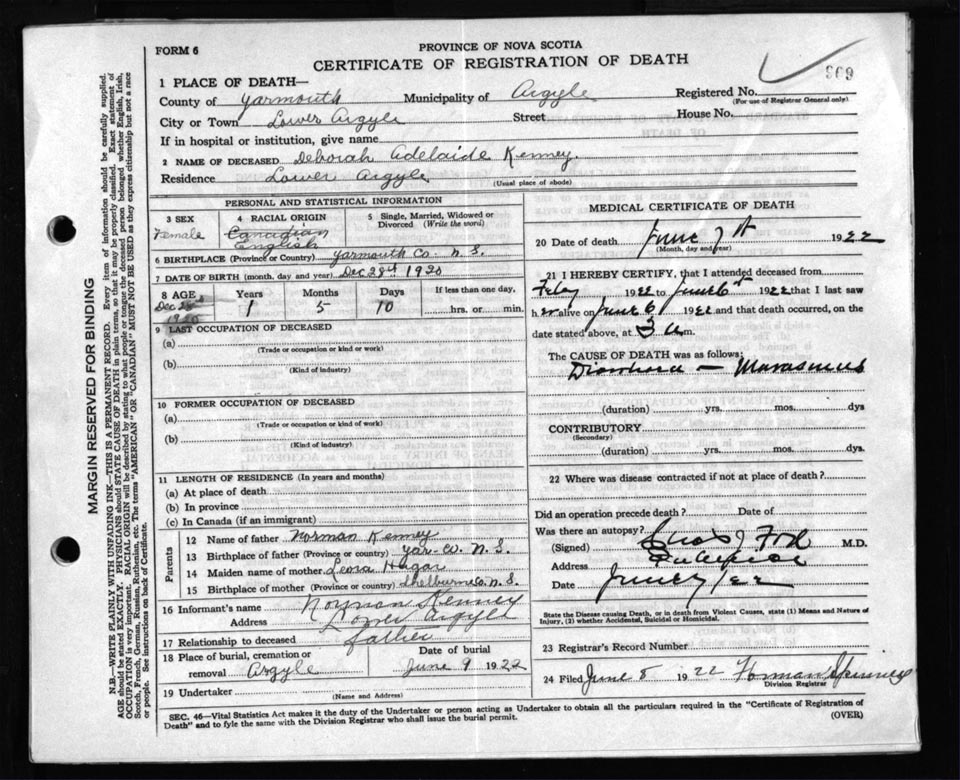 FORM 6
PROVINCE OF NOVA SCOTIA
CERTIFICATE OF REGISTRATION OF DEATH
369
1 PLACE OF DEATH—
County of Yarmouth Municipality of Argyle Registered No.
(For use of Registrar General only)
City or Town Lower Argyle Street House No.
If in hospital or institution, give name
2 NAME OF DECEASED Deborah Adelaide Kenney.
Residence Lower Argyle
(Usual place of abode)
PERSONAL AND STATISTICAL INFORMATION
3 SEX
Female
4 RACIAL ORIGIN
Canadian
English
5 Single, Married, Widowed or Divorced (Write the word)
6 BIRTHPLACE (Province or Country) Yarmouth Co. N. S.
7 DATE OF BIRTH (month, day and year) Dec 28th 1920
8 AGE Years Months Days If less than one day,
Dec 28th 1 5 10 hrs. or min.
1920
9 LAST OCCUPATION OF DECEASED
(a)
(Trade or occupation or kind or work)
(b)
(Kind of industry)
10 FORMER OCCUPATION OF DECEASED
(a)
(Trade or occupation or kind of work)
(b)
(Kind of industry)
11 LENGTH OF RESIDENCE (In years and months)
(a) At place of death
(b) In province
(c) In Canada (if an immigrant)
Parents
12 Name of father Norman Kenney
13 Birthplace of father (Province or country) Yar-Co. N. S.
14 Maiden name of mother Leora Hagar
15 Birthplace of mother (Province or country) Shelburne Co. N. S.
16 Informant's name Norman Kenney
Address Lower Argyle
17 Relationship to deceased father
18 Place of burial, cremation or removal Argyle Date of burial June 9 1922
19 Undertaker
(Name and Address)
MEDICAL CERTIFICATE OF DEATH
20 Date of death June 7th 1922
(Month, day and year)
21 I HEREBY CERTIFY, that I attended deceased from
Feby 1922 to June 6th 1922 that I last saw
her alive on June 6, 1922 and that death occurred, on the
date stated above, at 3 a m.
The CAUSE OF DEATH was as follows:
Diarrhoea — Marasmus
(duration) yrs. mos. dys
CONTRIBUTORY
(Secondary)
(duration) yrs. mos. dys
22 Where was disease contracted if not at place of death?
Did an operation precede death? Date of
Was there an autopsy?
(Signed) M.D.
Address
Date June 7/22
State the Disease causing Death, or in death from Violent Causes, state (1) Means and Nature of Injury, (2) whether Accidental, Suicidal or Homicidal.
23 Registrar's Record Number
24 Filed June 8 1922
Division Registrar
SEC. 46—Vital Statistics Act makes it the duty of the Undertaker or person acting as Undertaker to obtain all the particulars required in the "Certificate of Registration of
Death" and to fyle the same with the Division Registrar who shall issue the burial permit.
(OVER)
MARGIN RESERVED FOR BINDING
N.B.—WRITE PLAINLY WITH UNFADING INK—THIS IS A PERMANENT RECORD. Every item of information should be carefully supplied.
AGE should be stated EXACTLY. PHYSICIANS should STATE CAUSE OF DEATH in plain terms, so that it may be properly classified. Exact statement of
OCCUPATION is very important. RACIAL ORIGIN will be described by stating to what people or tongue the deceased person belonged whether English, Irish,
Scotch, French, German, Russian, Ruthenian, etc. The terms "AMERICAN" OR "CANADIAN" MUST NOT BE USED as they express citizenship but not a race
or people. See instructions on back of Certificate.